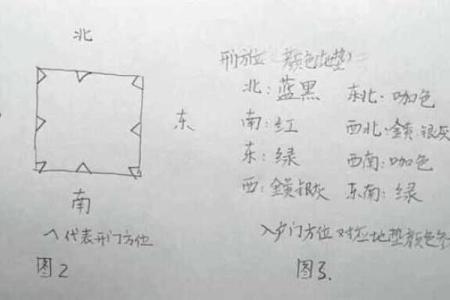 北
东
南
∧代表开门方位
图2
开门方位 颜色(地垫)
北:蓝黑 东北:咖色
南:红 西北:金黄银灰
东:绿 西南:咖色
西:金黄银灰 东南:绿
入户门方位对应地垫颜色
图3.